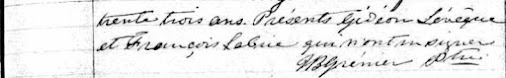 trente trois ans. Présents Gédéon Lévêque
et François Labrie qui n'ont su signer
JBGrenier Ptre